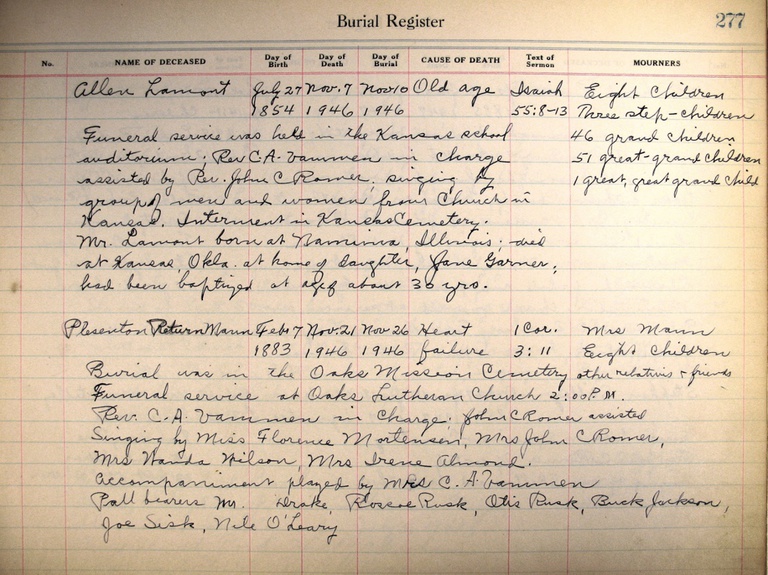 Burial Register
277
No. NAME OF DECEASED Day of Birth Day of Death Day of Burial CAUSE OF DEATH Text of Sermon MOURNERS
Allen Lamont July 27 Nov. 7 Nov 10 Old age Isaiah Eight Children
1854 1946 1946 55:8-13 Three step-children
Funeral service was held in the Kansas school 46 grand children
auditorium; Rev. C. A. Vammen in charge 51 great-grand children
assisted by Rev. John C Romer, singing by 1 great, great grand child
group of men and women from Church in
Kansas. Interment in Kansas Cemetery.
Mr. Lamont born at Illinois; died
at Kansas, Okla. at home of daughter, Jane Garner;
had been baptized at age of about 30 yrs.
Plesenton Return Mann Feb. 7 Nov. 21 Nov 26 Heart 1 Cor. Mrs Mann
1883 1946 1946 failure 3:11 Eight Children
Burial was in the Oaks Mission Cemetery other relatives + friends
Funeral service at Oaks Lutheran Church 2:00 P.M.
Rev. C. A. Vammen in charge; John C Romer assisted
Singing by Miss Florence Mortensen, Mrs John C Romer,
Mrs Wanda Wilson, Mrs Irene Almond.
Accompaniment played by Mrs C. A. Vammen
Pall bearers Mr. Drake, Roscoe Rusk, Otis Rusk, Buck Jackson,
Joe Sisk, Nile O'Leary